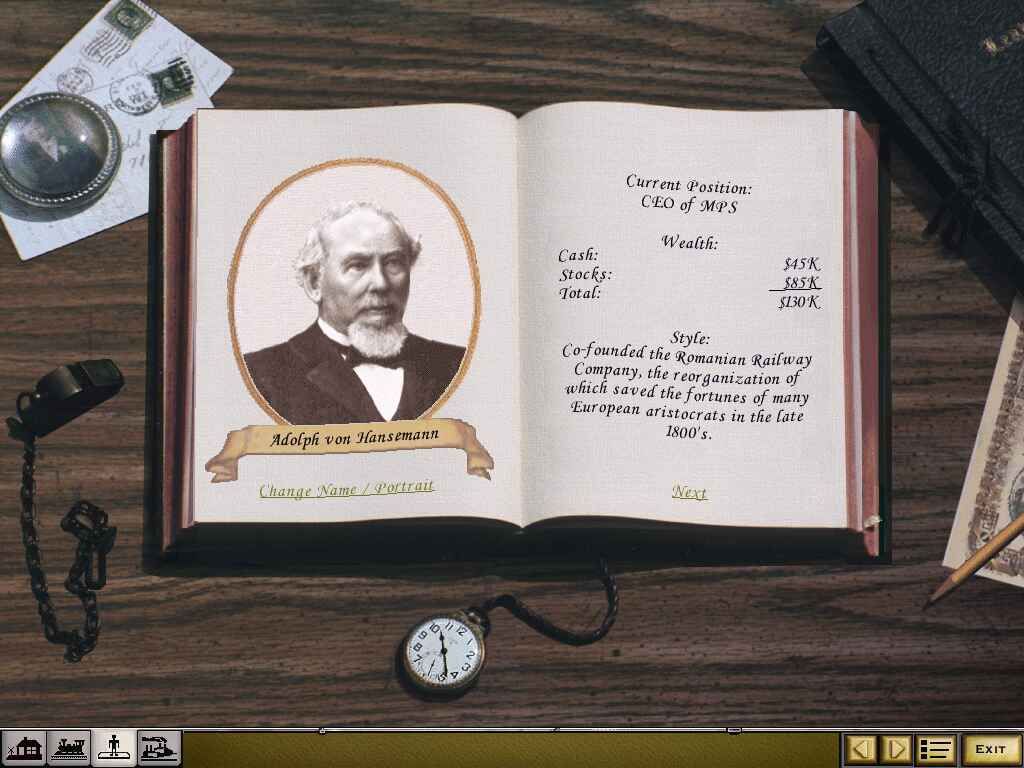 Current Position:
CEO of MPS
Wealth:
Cash: $45K
Stocks: $85K
Total: $130K
Style:
Co-founded the Romanian Railway
Company, the reorganization of
which saved the fortunes of many
European aristocrats in the late
1800's.
Adolph von Hansemann
Change Name / Portrait
Next
EXIT